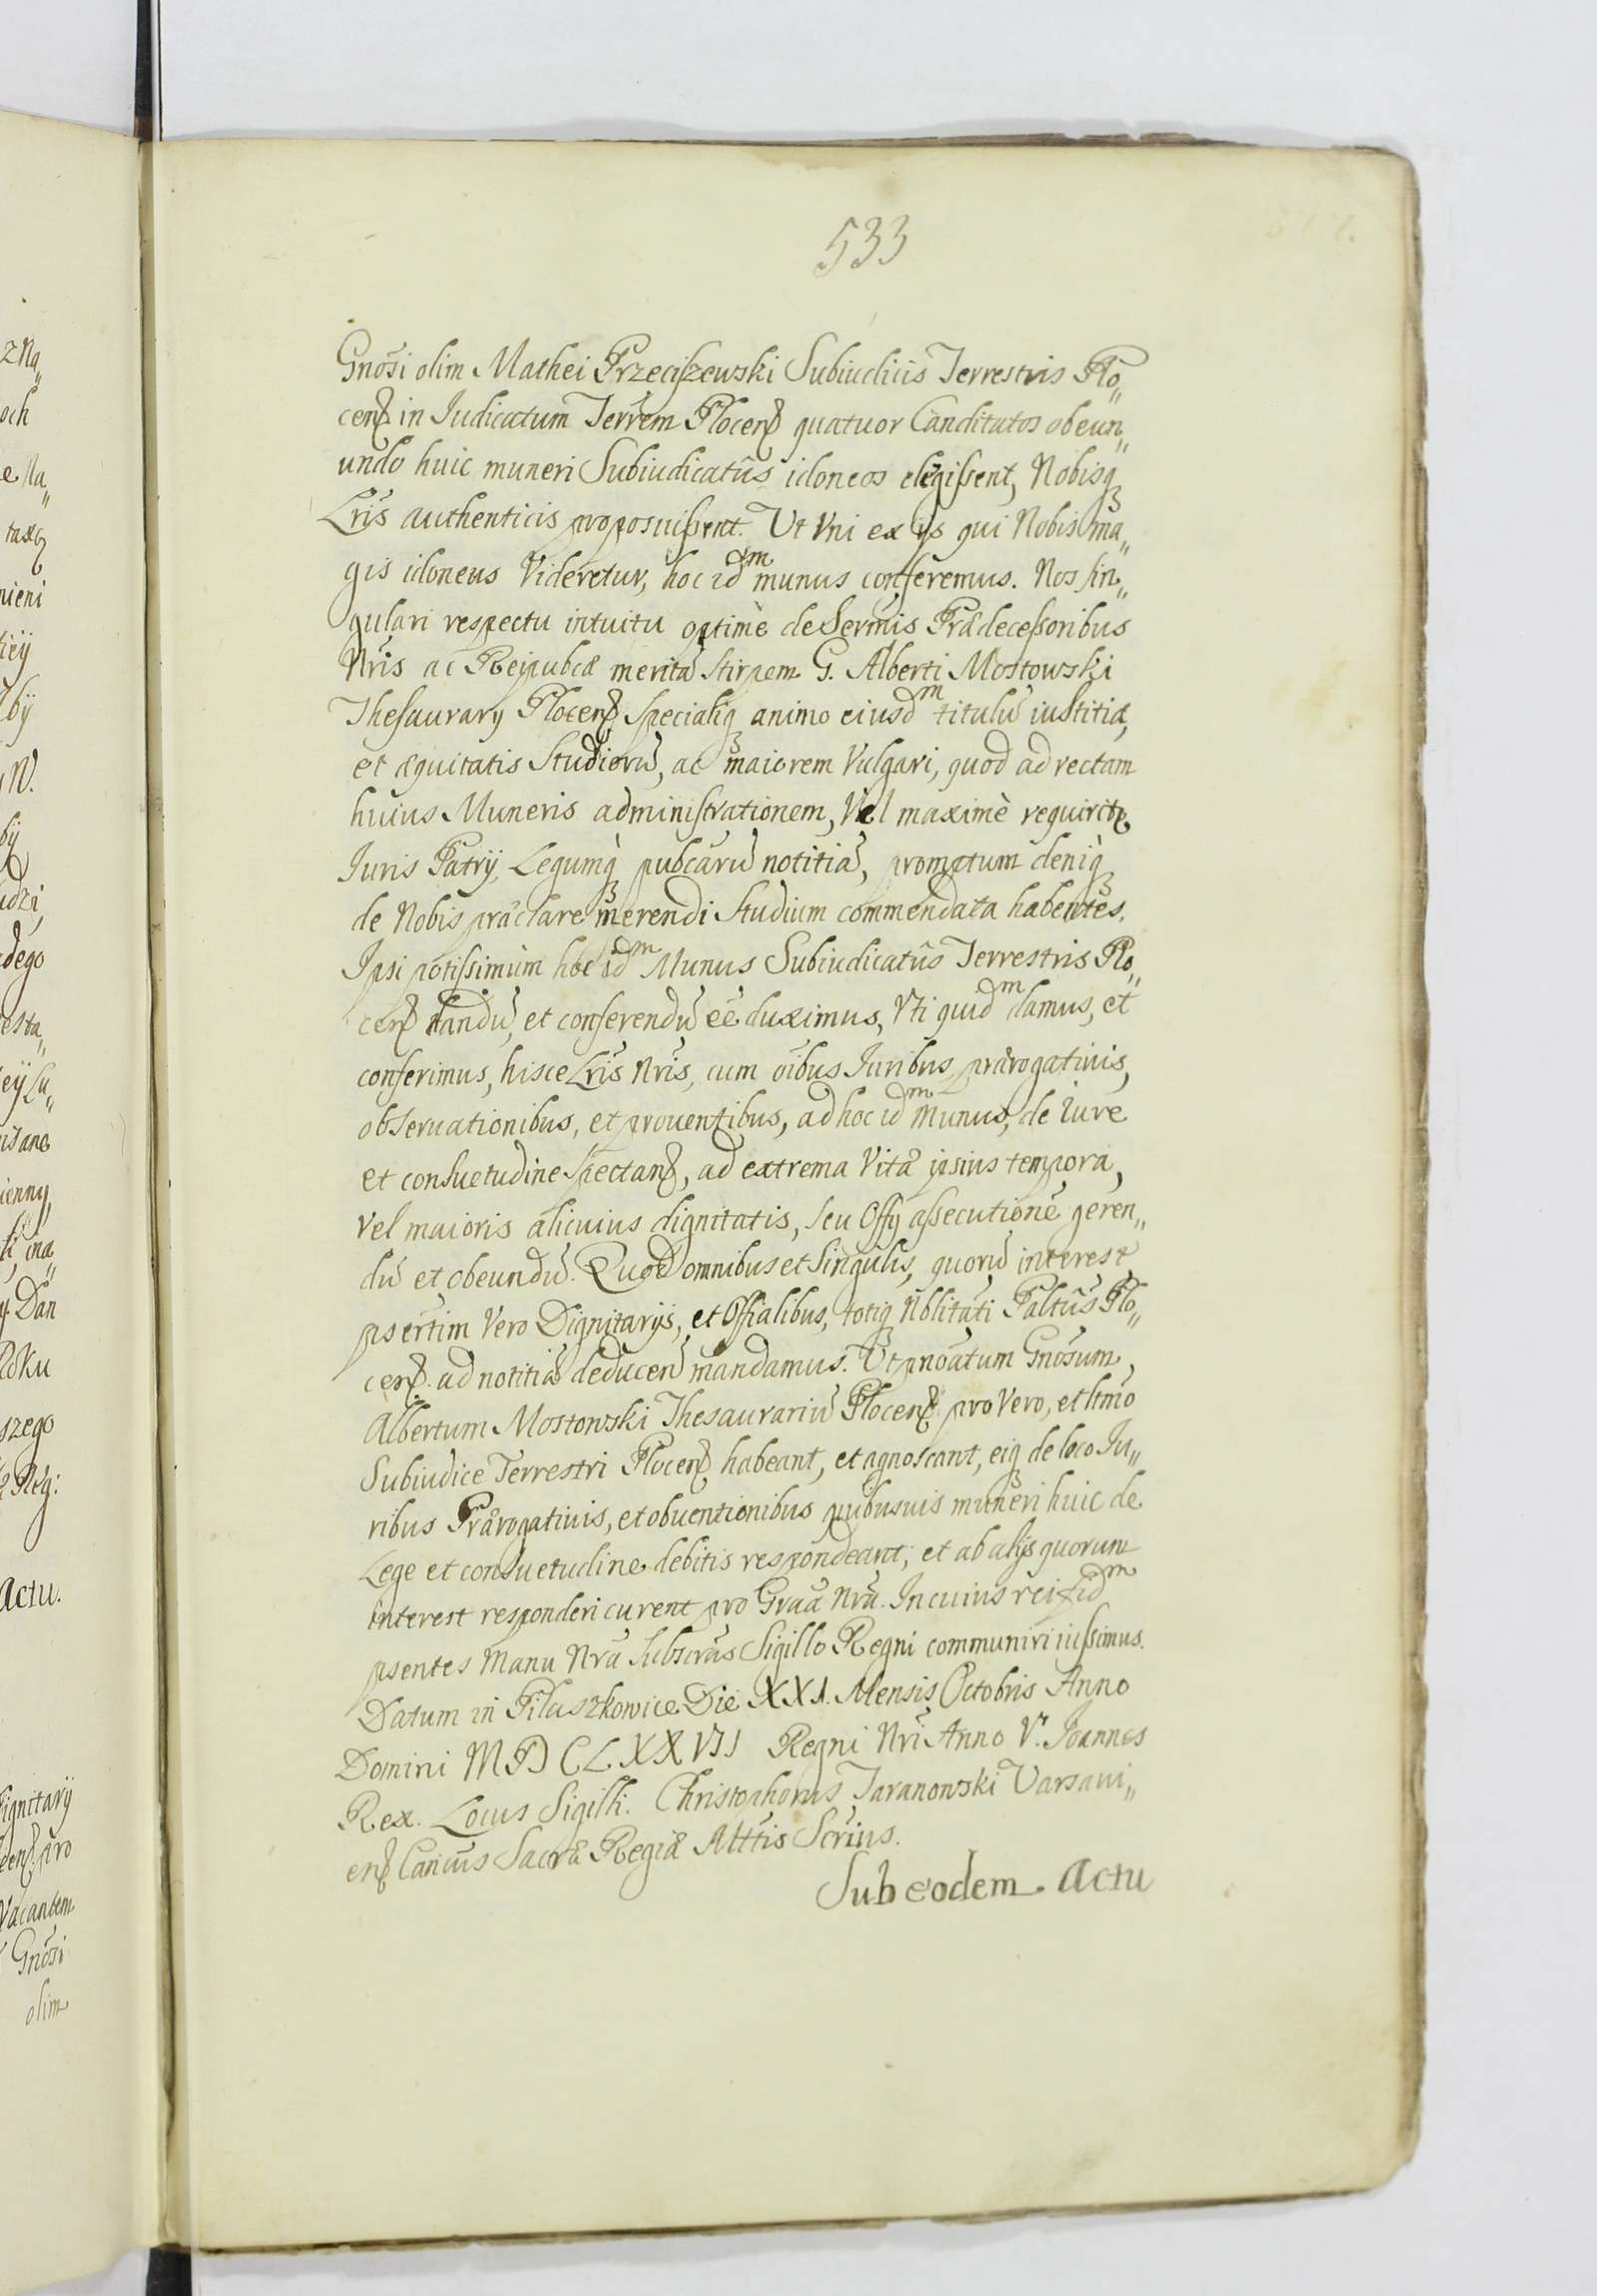 533
Gnõsi olim Mathei Przeciszewski Subiudicis Terrestris Plo„
cen͠ in Iudicatum Terrem Plocen͠ quatuor Canditatos obeun„
undo huic muneri Subiudicatûs idoneos elegissent, Nobisq
Lris authenticis proposuissent. Ut Vni ex ijs qui Nobis ma„
gis idoneus Videretur, hoc idᵐ munus conferemus. Nos sin„
gulari respectu intuitu optimè de Sermis Prædecessoribus
Nris ac Reipubcæ meritã stirpem G. Alberti Mostowski
Thesaurarij Plocen͠ specialiq animo eiusdᵐ titulũ iustitiæ,
et æquitatis Studiorũ, ac maiorem Vulgari, quod ad rectam
huius Muneris administrationem, Vel maximè requiritr
Iuris Patrij, Legumq̀ pubcarũ notitiã, promptum deniq̀
de Nobis præclare merendi Studium commendata habentes.
Ipsi potissimùm hoc idᵐ Munus Subiudicatûs Terrestris Plo„
cen͠ dandũ, et conferendũ eẽ duximus, Vti quidᵐ damus, et
conferimus, hisce Lris Nris, cum oĩbus Iuribus prærogativis,
obseruationibus, et prouentibus, ad hoc idᵐ Munus, de iure
et consuetudine Spectan͠, ad extrema Vitæ ipsius tempora,
vel maioris alicuius dignitatis, seu Offij assecutionẽ geren„
dũ et obeundũ. Quod omnibus et Singulis, quorũ interest
psertim Vero Dignitarijs, et Offialibus, totiq Nblitati Paltûs Plo„
cen͠. ad notitiã deducen͠ mandamus. Ut pnoãtum Gnõsum,
Albertum Mostowski Thesaurariũ Plocen͠. pro Vero, et ltmo
Subiudice Terrestri Plocen͠ habeant, et agnoscant, eiq de loco Iu„
ribus Prærogativis, et obuentionibus quibusuis muneri huic de
Lege et consuetudine debitis respondeant, et ab alijs quorum
interest responderi curent pro Graã Nrã. In cuius rei fidᵐ
psentes Manu Nrã Subscrãs Sigillo Regni communiri iussimus.
Datum in Pilaszkowice Die XXI. Mensis Octobris Anno
Domini MDCLXXVII Regni Nri Anno V. Ioannes
Rex. Locus Sigilli. Christophorus Taranowski Varsaui„
en͠ Canĩcus Sacræ Regiæ Mttis Scrius.
Sub eodem Actu